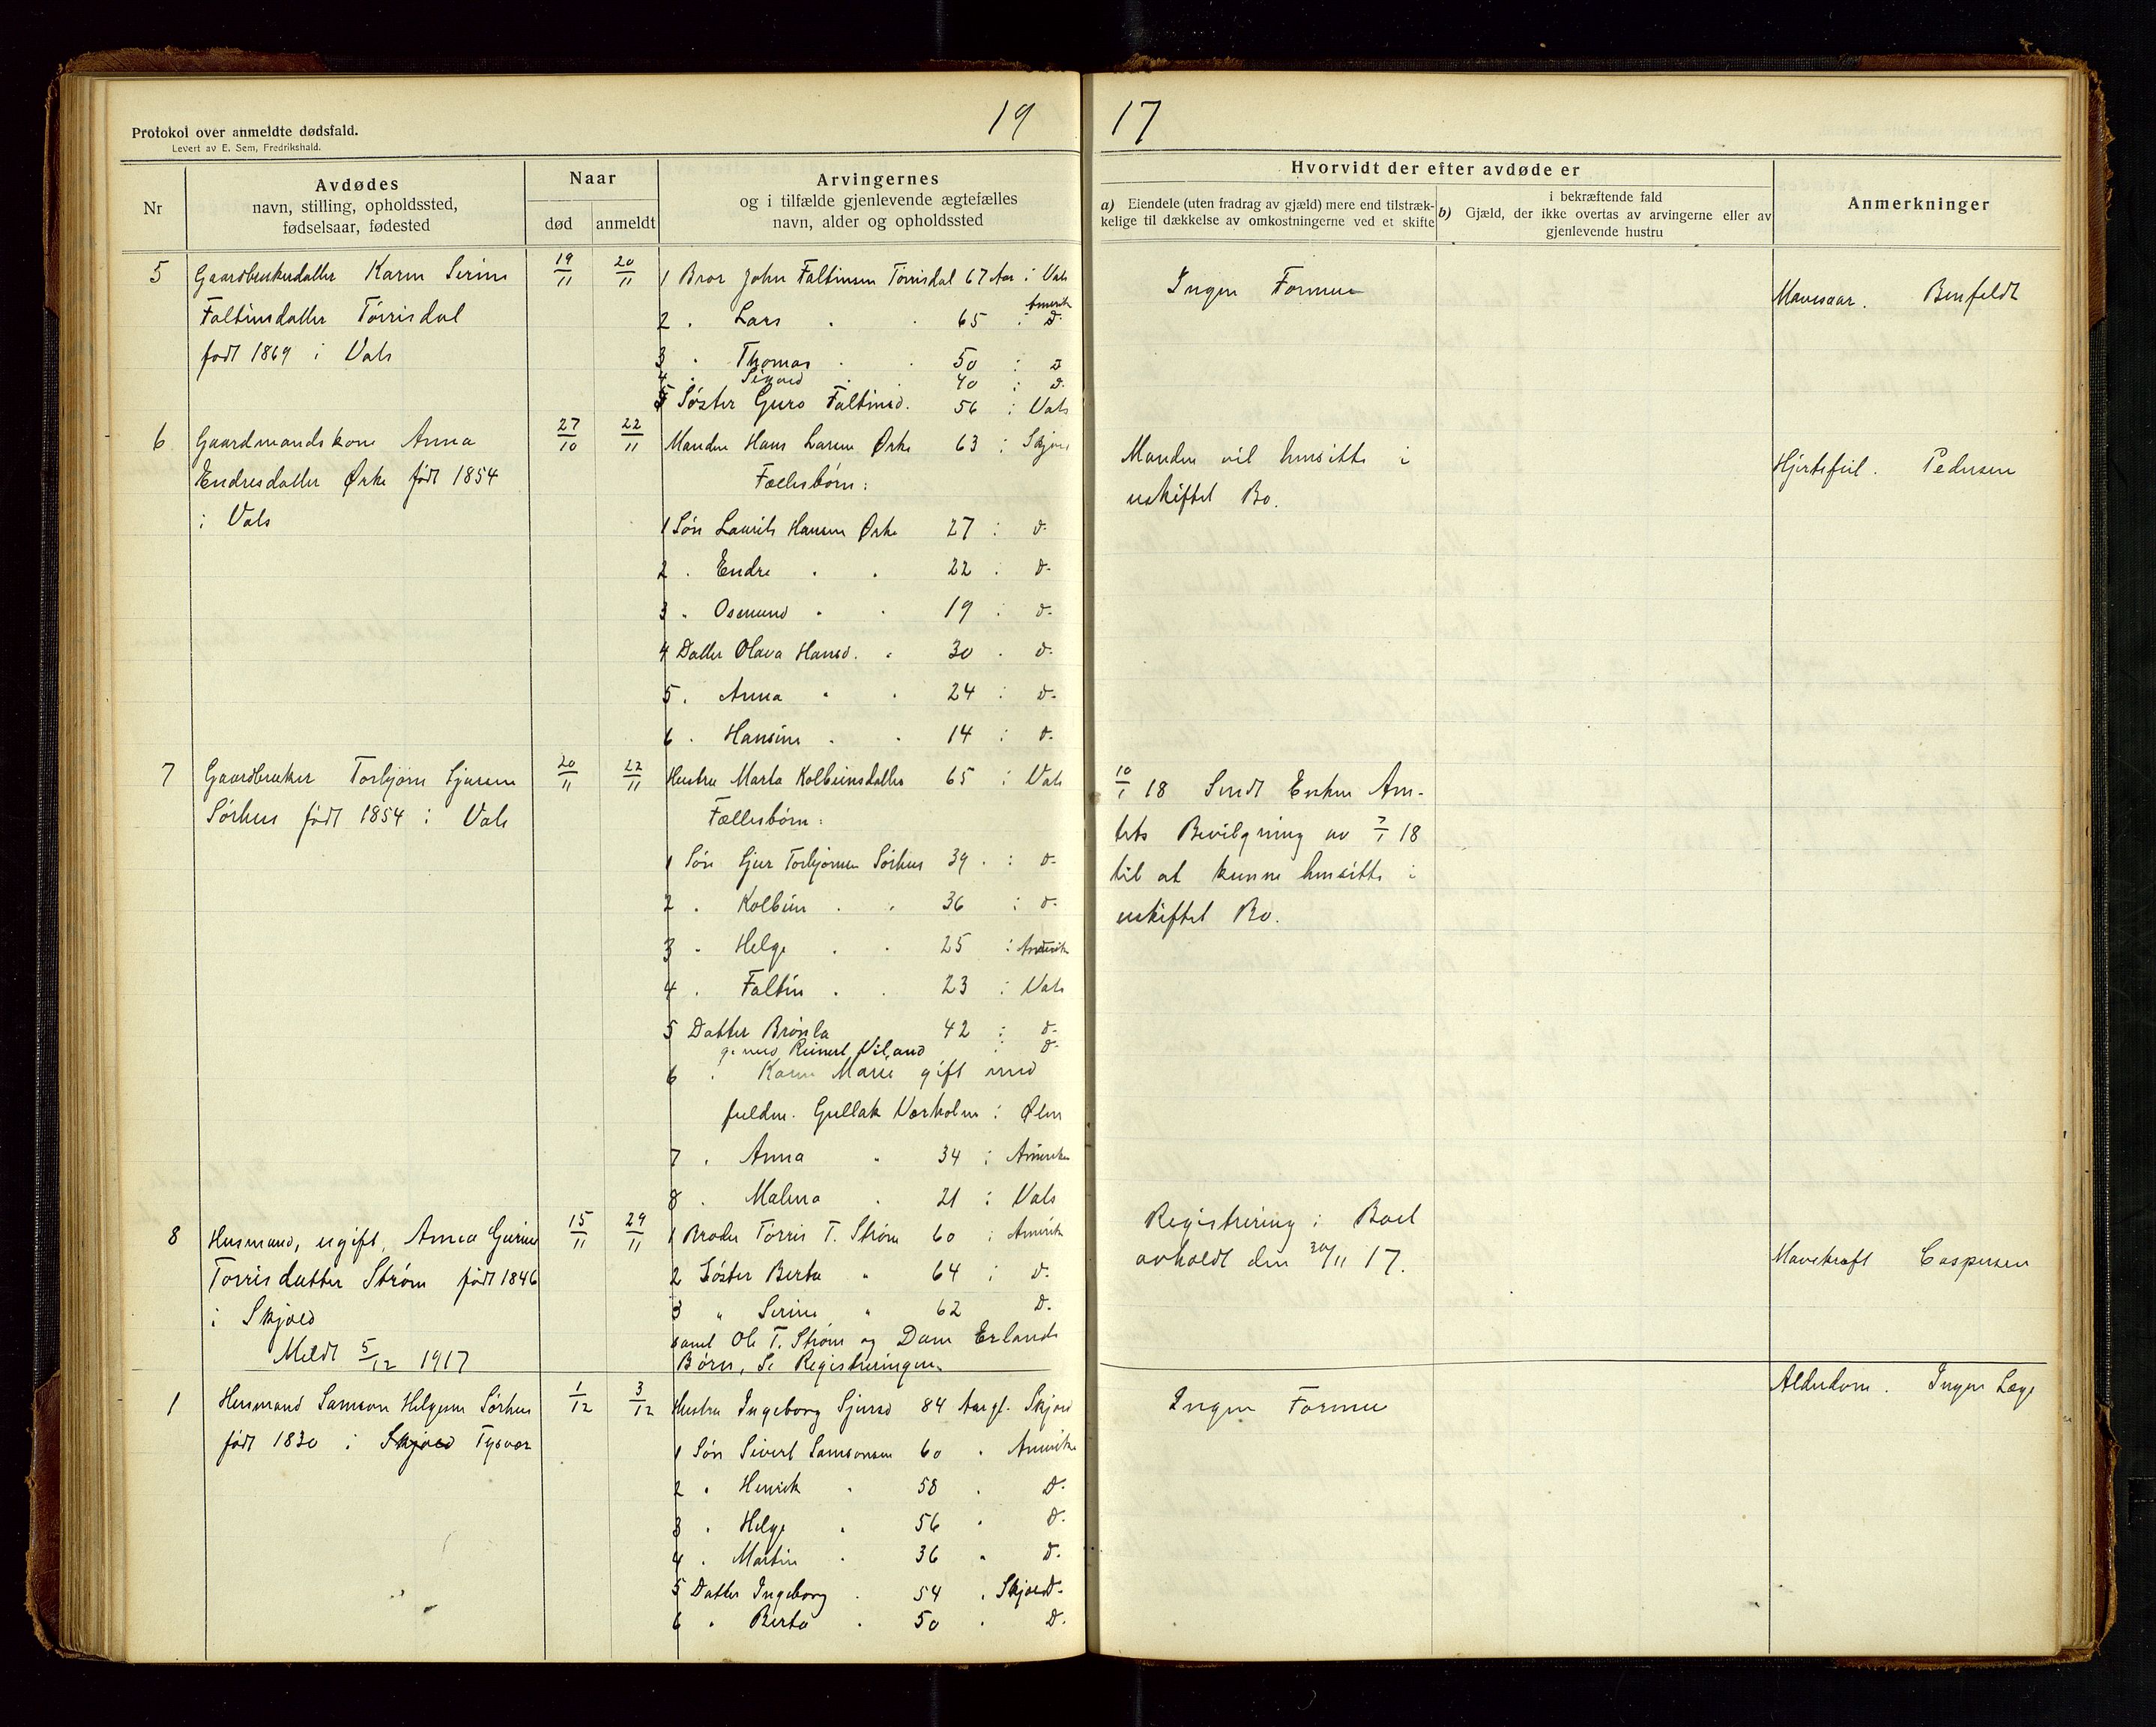 19 17
Protokol over anmeldte dødsfald.
Levert av E. Sem, Fredrikshald.
Nr
Avdødes
navn, stilling, opholdssted,
fødselsaar, fødested
Naar
død anmeldt
Arvingernes
og i tilfælde gjenlevende ægtefælles
navn, alder og opholdssted
Hvorvidt der efter avdøde er
a) Eiendele (uten fradrag av gjæld) mere end tilstræk-
kelige til dækkelse av omkostningerne ved et skifte
i bekræftende fald
b) Gjæld, der ikke overtas av arvingerne eller av
gjenlevende hustru
Anmerkninger
5 Gaardbrukerdatter Karen Serine
Faltinsdatter Tørrisdal
født 1869 i Vats
19/11 20/11
1 Bror John Faltinsen Tørrisdal 67 Aar i Vats
2 " Lars " " 65 i Amerik
D-
3 " Thomas " " 50 : D
4 " Sivard " " 40 : D-
5 Søster Guro Faltinsd. 56 i Vats
Ingen Formue
Mavesaar. Benfeldt
6 Gaardmandskone Anna
Endresdatter Ørke født 1854
i Vats
27/10 22/11
Manden Hans Larsen Ørke 63 i Skjold
Fællesbørn:
1 Søn Laurits Hansen Ørke 27 : D-
2 " Endre " " 22 : D-
3 " Osmund " " 19 : D-
4 Datter Olava Hansd. " 30 " D-
5 " Anna " " 24 : D-
6 " Hansine " " 14 : D-
Manden vil hensitte i
uskiftet Bo.
Hjertefeil. Pedersen
7 Gaardbruker Torbjørn Sjursen
Sørhus født 1854 i Vats
20/11 22/11
Hustru Marta Kolbeinsdatter 65 i Vats
Fællesbørn:
1 Søn Sjur Torbjørnsen Sørhus 39 : D-
2 " Kolbein " " 36 : D-
3 " Helge " " 25 : Amerika
4 " Faltin " " 23 i Vats
5 Datter Brønla 42 : D-
g. med Reinert Viland : D-
6 " Karen Marie gift med
fuldm. Gullak Vorholm i Ølen
7 " Anna " 34 i Amerika
8 " Malena " 21 i Vats
10/1 18 Sendt Enken Am-
tets Bevilgning av 7/1 18
til at kunne hensitte i
uskiftet Bo.
8 Husmand, ugift, Anna Gurine
Torrisdatter Strøm født 1846
i Skjold
15/11 29/11
1 Broder Tørris T. Strøm 60 i Amerika
2 Søster Berta " 64 i D-
3 " Serine " 62 D-
samt Ole T. Strøm og Dam Erlands
Børn, Se Registreringen
Registrering i Boet
avholdt den 30/11 17.
Mavekræft Caspersen
Meldt 5/12 1917
1 Husmand Samson Helgesen Sørhus
født 1830 i Skjold Tysvær
1/12 3/12
Hustru Ingeborg Sjursd 84 Aar gl. Skjold
1 Søn Sivert Samsonsen 60 " Amerika
2 " Henrik " 58 " D-
3 " Helge " 56 " D-
4 " Martin " 36 " D-
5 Datter Ingeborg " 54 " Skjold-
6 " Berta " 50 " D-
Ingen Formue
Alderdom. Ingen Læge